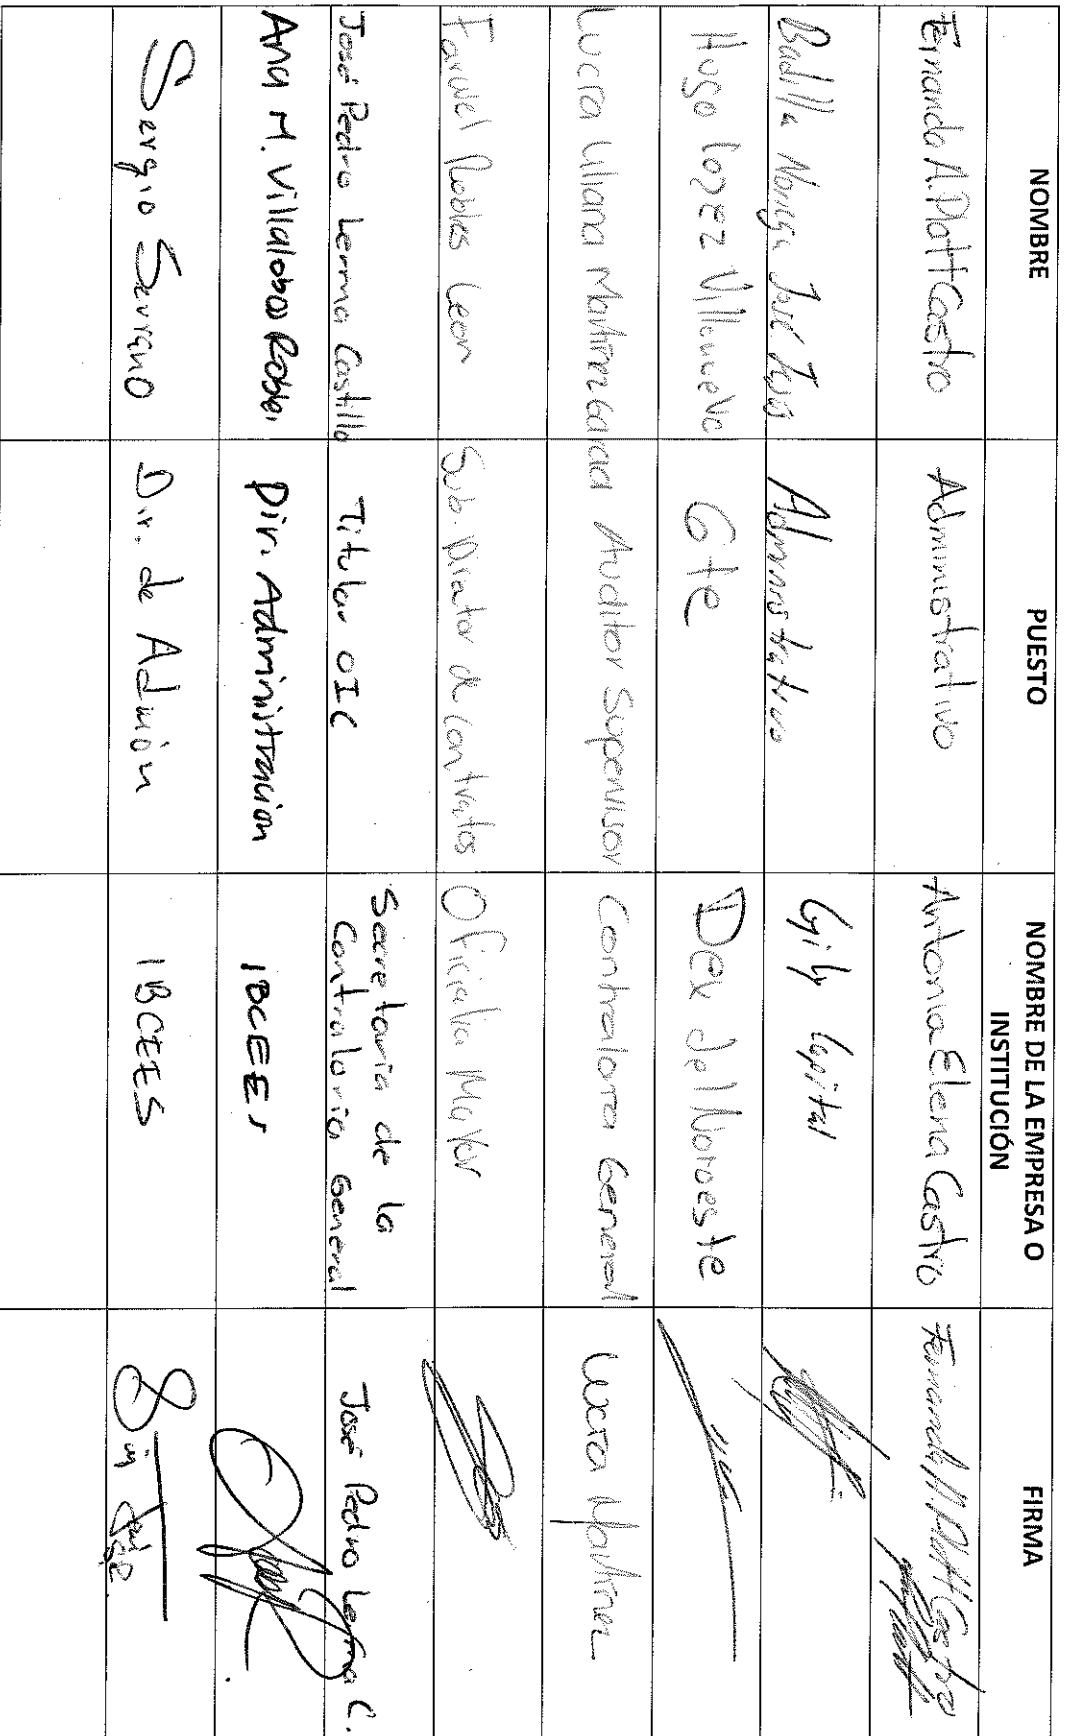 NOMBRE
PUESTO
NOMBRE DE LA EMPRESA O
INSTITUCIÓN
FIRMA
Fernando A. Platt Castro
Administrativo
Antonia Elena Castro
Fernando A. Platt Castro
Badilla Noriega José Jesús
Administrativo
Capital
Hugo Lopez Villanueva
Gte
Dex del Noroeste
Lucia Liliana Martinez Garcia
Auditor Supervisor
Contraloria General
Lucia Martinez
Robles Leon
Sub. Director de Contratos
Oficialia Mayor
José Pedro Lerma Castillo
Titular OIC
Secretaria de la
Contraloria General
José Pedro Lerma C.
Ana M. Villalobos Robles
Dir. Administracion
IBCEES
Sergio Serrano
Dir. de Admión
IBCEES